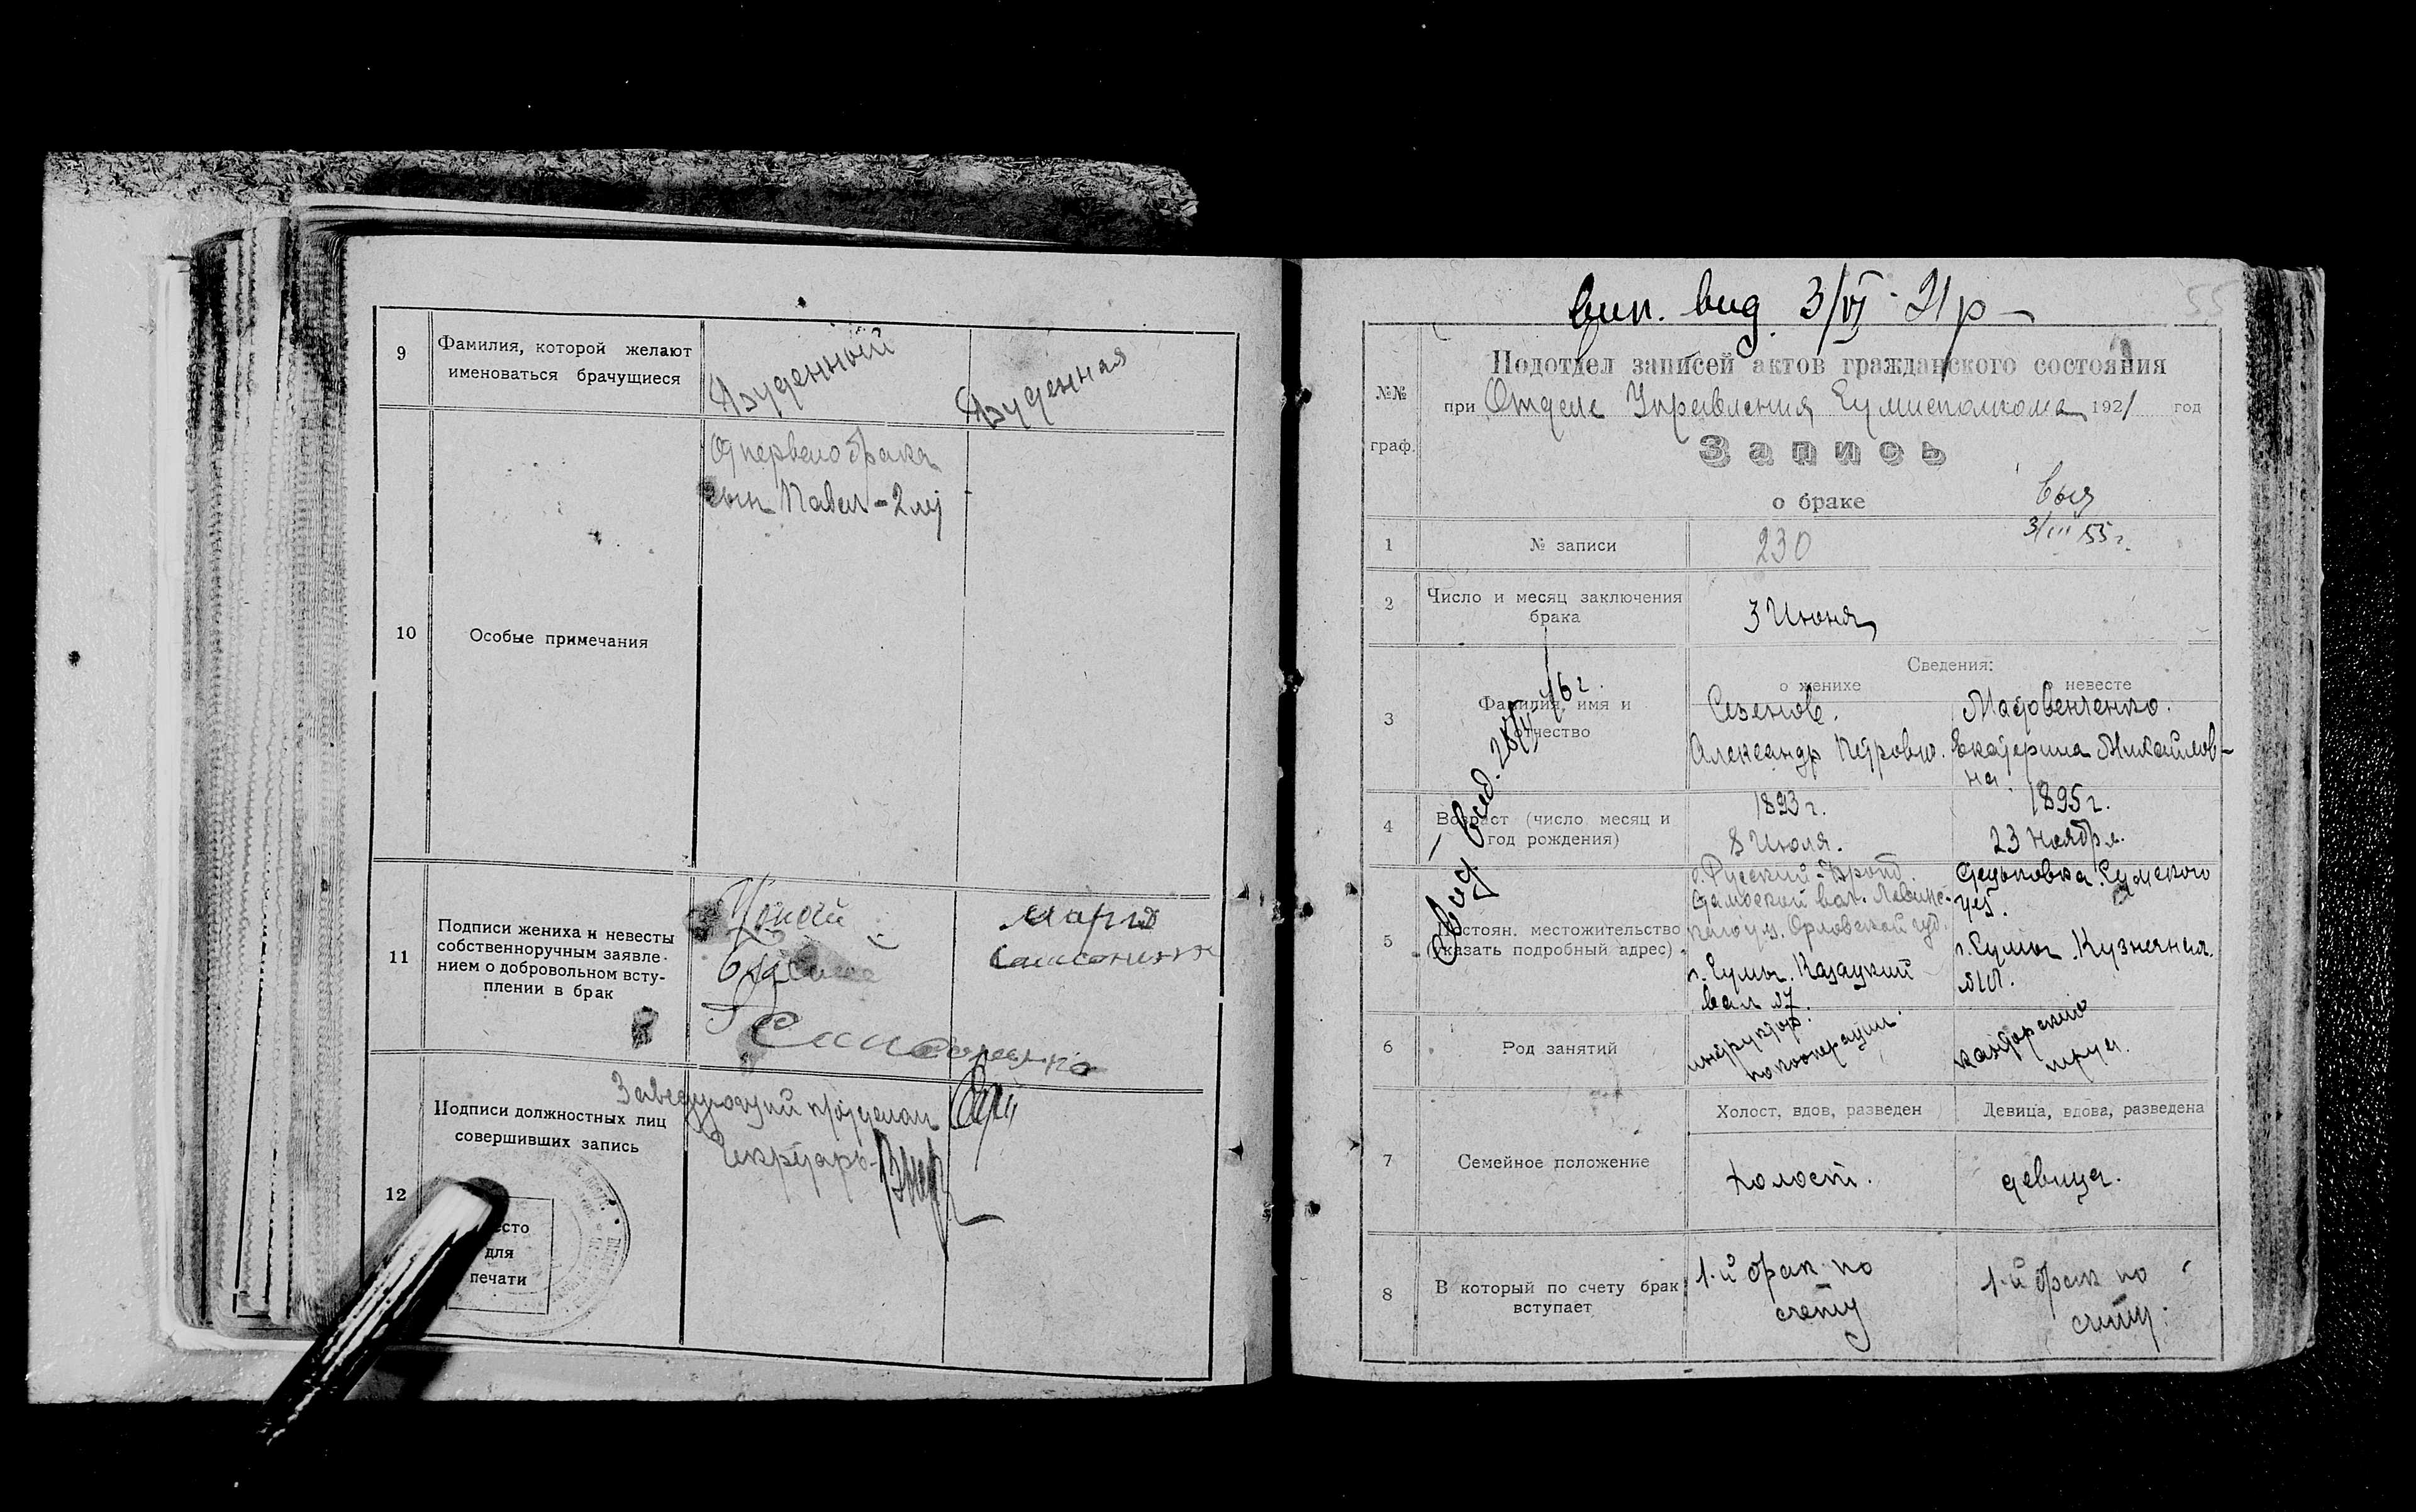 9
Фамилия, которой желают
именоваться брачущиеся
10
Особые примечания
От первого брака
сын Павел - 2 лет
11
Подписи жениха и невесты
собственноручным заявле-
нием о добровольном всту-
плении в брак
12
Подписи должностных лиц
совершивших запись
Заведующий п/отделом
Секретарь
для
печати
вип. вид. 3/VI - 21 р
55
№№
граф.
Подотдел записей актов гражданского состояния
при Отделе Управления Сумисполкома 1921 год
Запись
о браке
3/III 55 г.
1
№ записи
230
2
Число и месяц заключения
брака
3 Июня
3
Фамилия, имя и
отчество
Сведения:
о женихе
о невесте
Александр Петрович.
Екатерина Михайлов-
на
4
Возраст (число месяц и
год рождения)
1893 г.
8 Июля.
1895 г.
23 Ноября.
5
Постоян. местожительство
(указать подробный адрес)
Орловской губ.
г. Сумы. Казацкий
вал №7.
Сумского
уез.
г. Сумы. Кузнечная.
6
Род занятий
инструктор.
по кооперации.
конторский
труд.
7
Семейное положение
Холост, вдов, разведен
Девица, вдова, разведена
холост.
девица.
8
В который по счету брак
вступает
1-й брак по
счету
1-й брак по
счету.